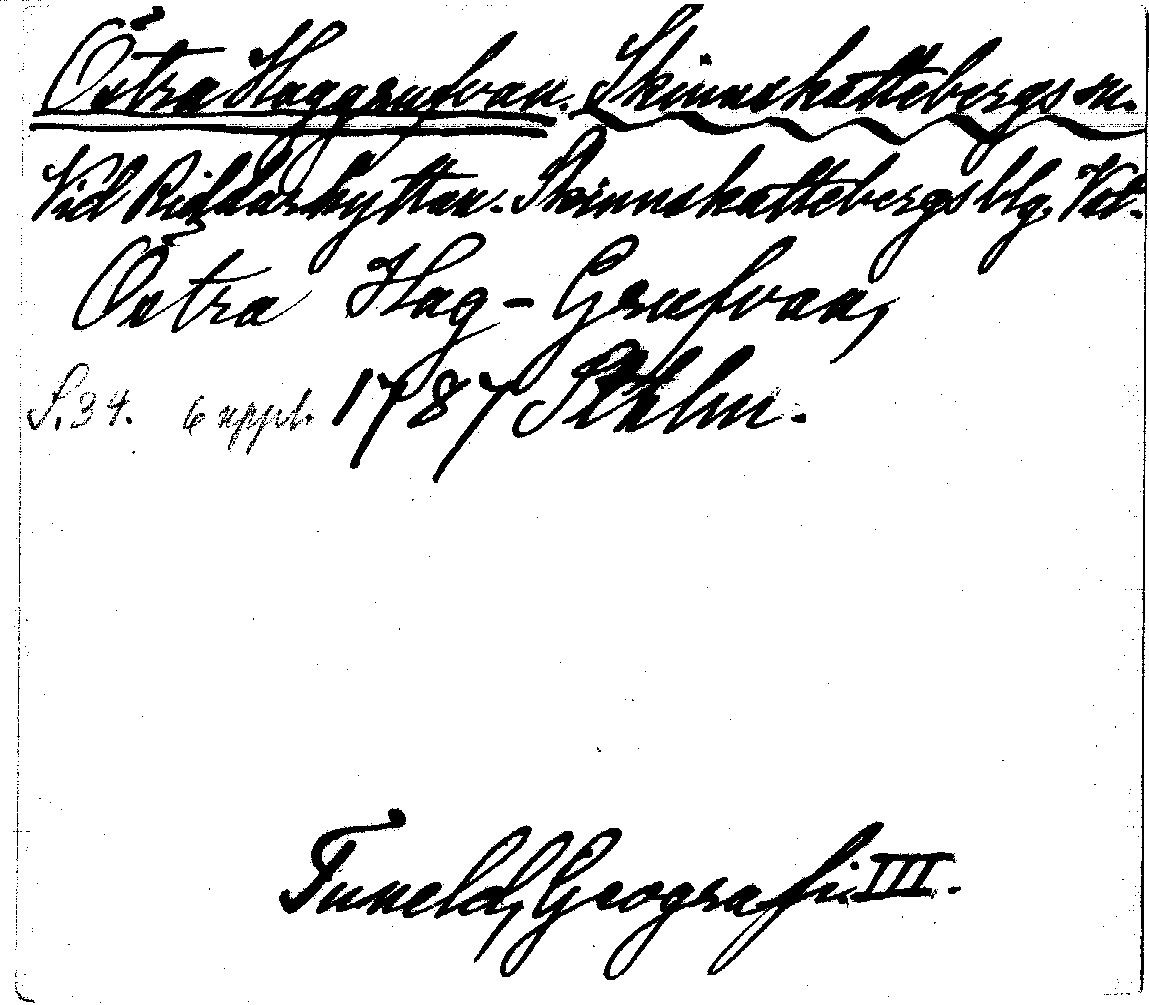 Östra Haggrufvan. Skinnskattebergs sn.
Vid Riddarhyttan. Skinnskattebergs blg. Vstl.
Östra Hag-Grufvan,
S. 34. 6 uppl. 1787 Sthlm.
Tuneld, Geografi III.